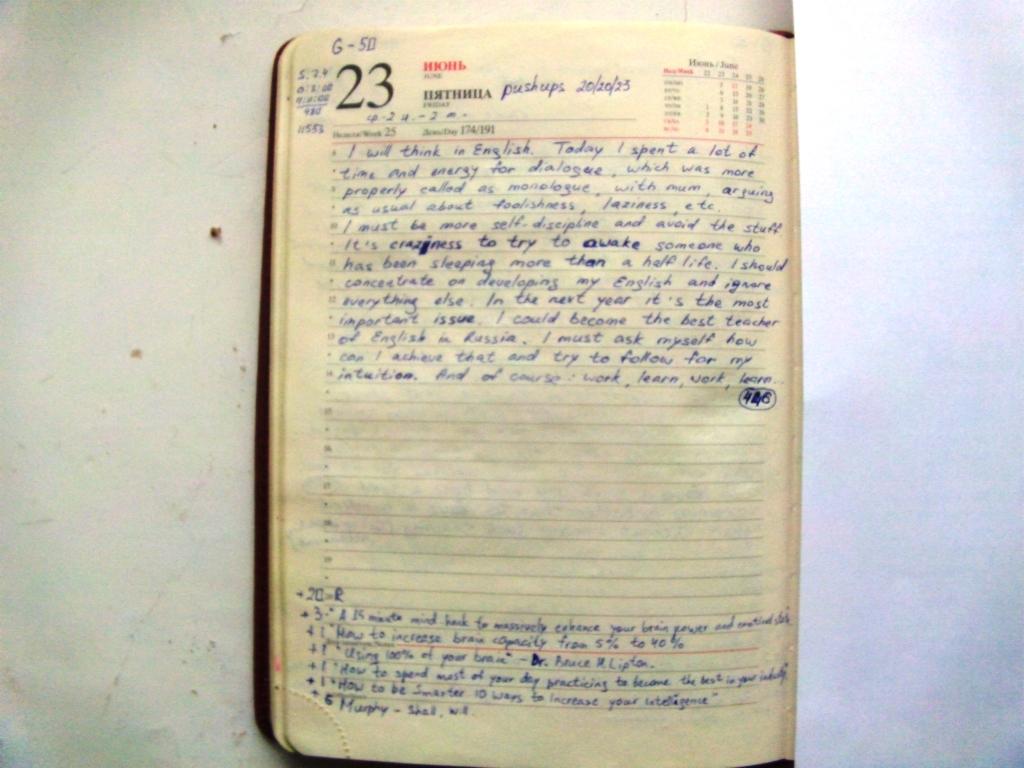 G-50
23
ИЮНЬ
JUNE
ПЯТНИЦА
FRIDAY
pushups 20/20/23
Июнь/June
Неделя/Week 25 День/Day 174/191
I will think in English. Today I spent a lot of
time and energy for dialogue, which was more
properly called as monologue, with mum, arguing
as usual about foolishness, laziness, etc.
I must be more self-discipline and avoid the stuff.
It's craziness to try to awake someone who
has been sleeping more than a half life. I should
concentrate on developing my English and ignore
everything else. In the next year it's the most
important issue. I could become the best teacher
of English in Russia. I must ask myself how
can I achieve that and try to follow for my
intuition. And of course: work, learn, work, learn...
+3 - "A 15 minute mind hack to massively enhance your brain power and emotional state
+1 "How to increase brain capacity from 5% to 40%
+1 "Using 100% of your brain" - Dr. Bruce H. Lipton.
+1 "How to spend most of your day practicing to become the best in your industry"
+1 "How to be Smarter 10 ways to Increase your intelligence"
+6 Murphy - Shall, will.